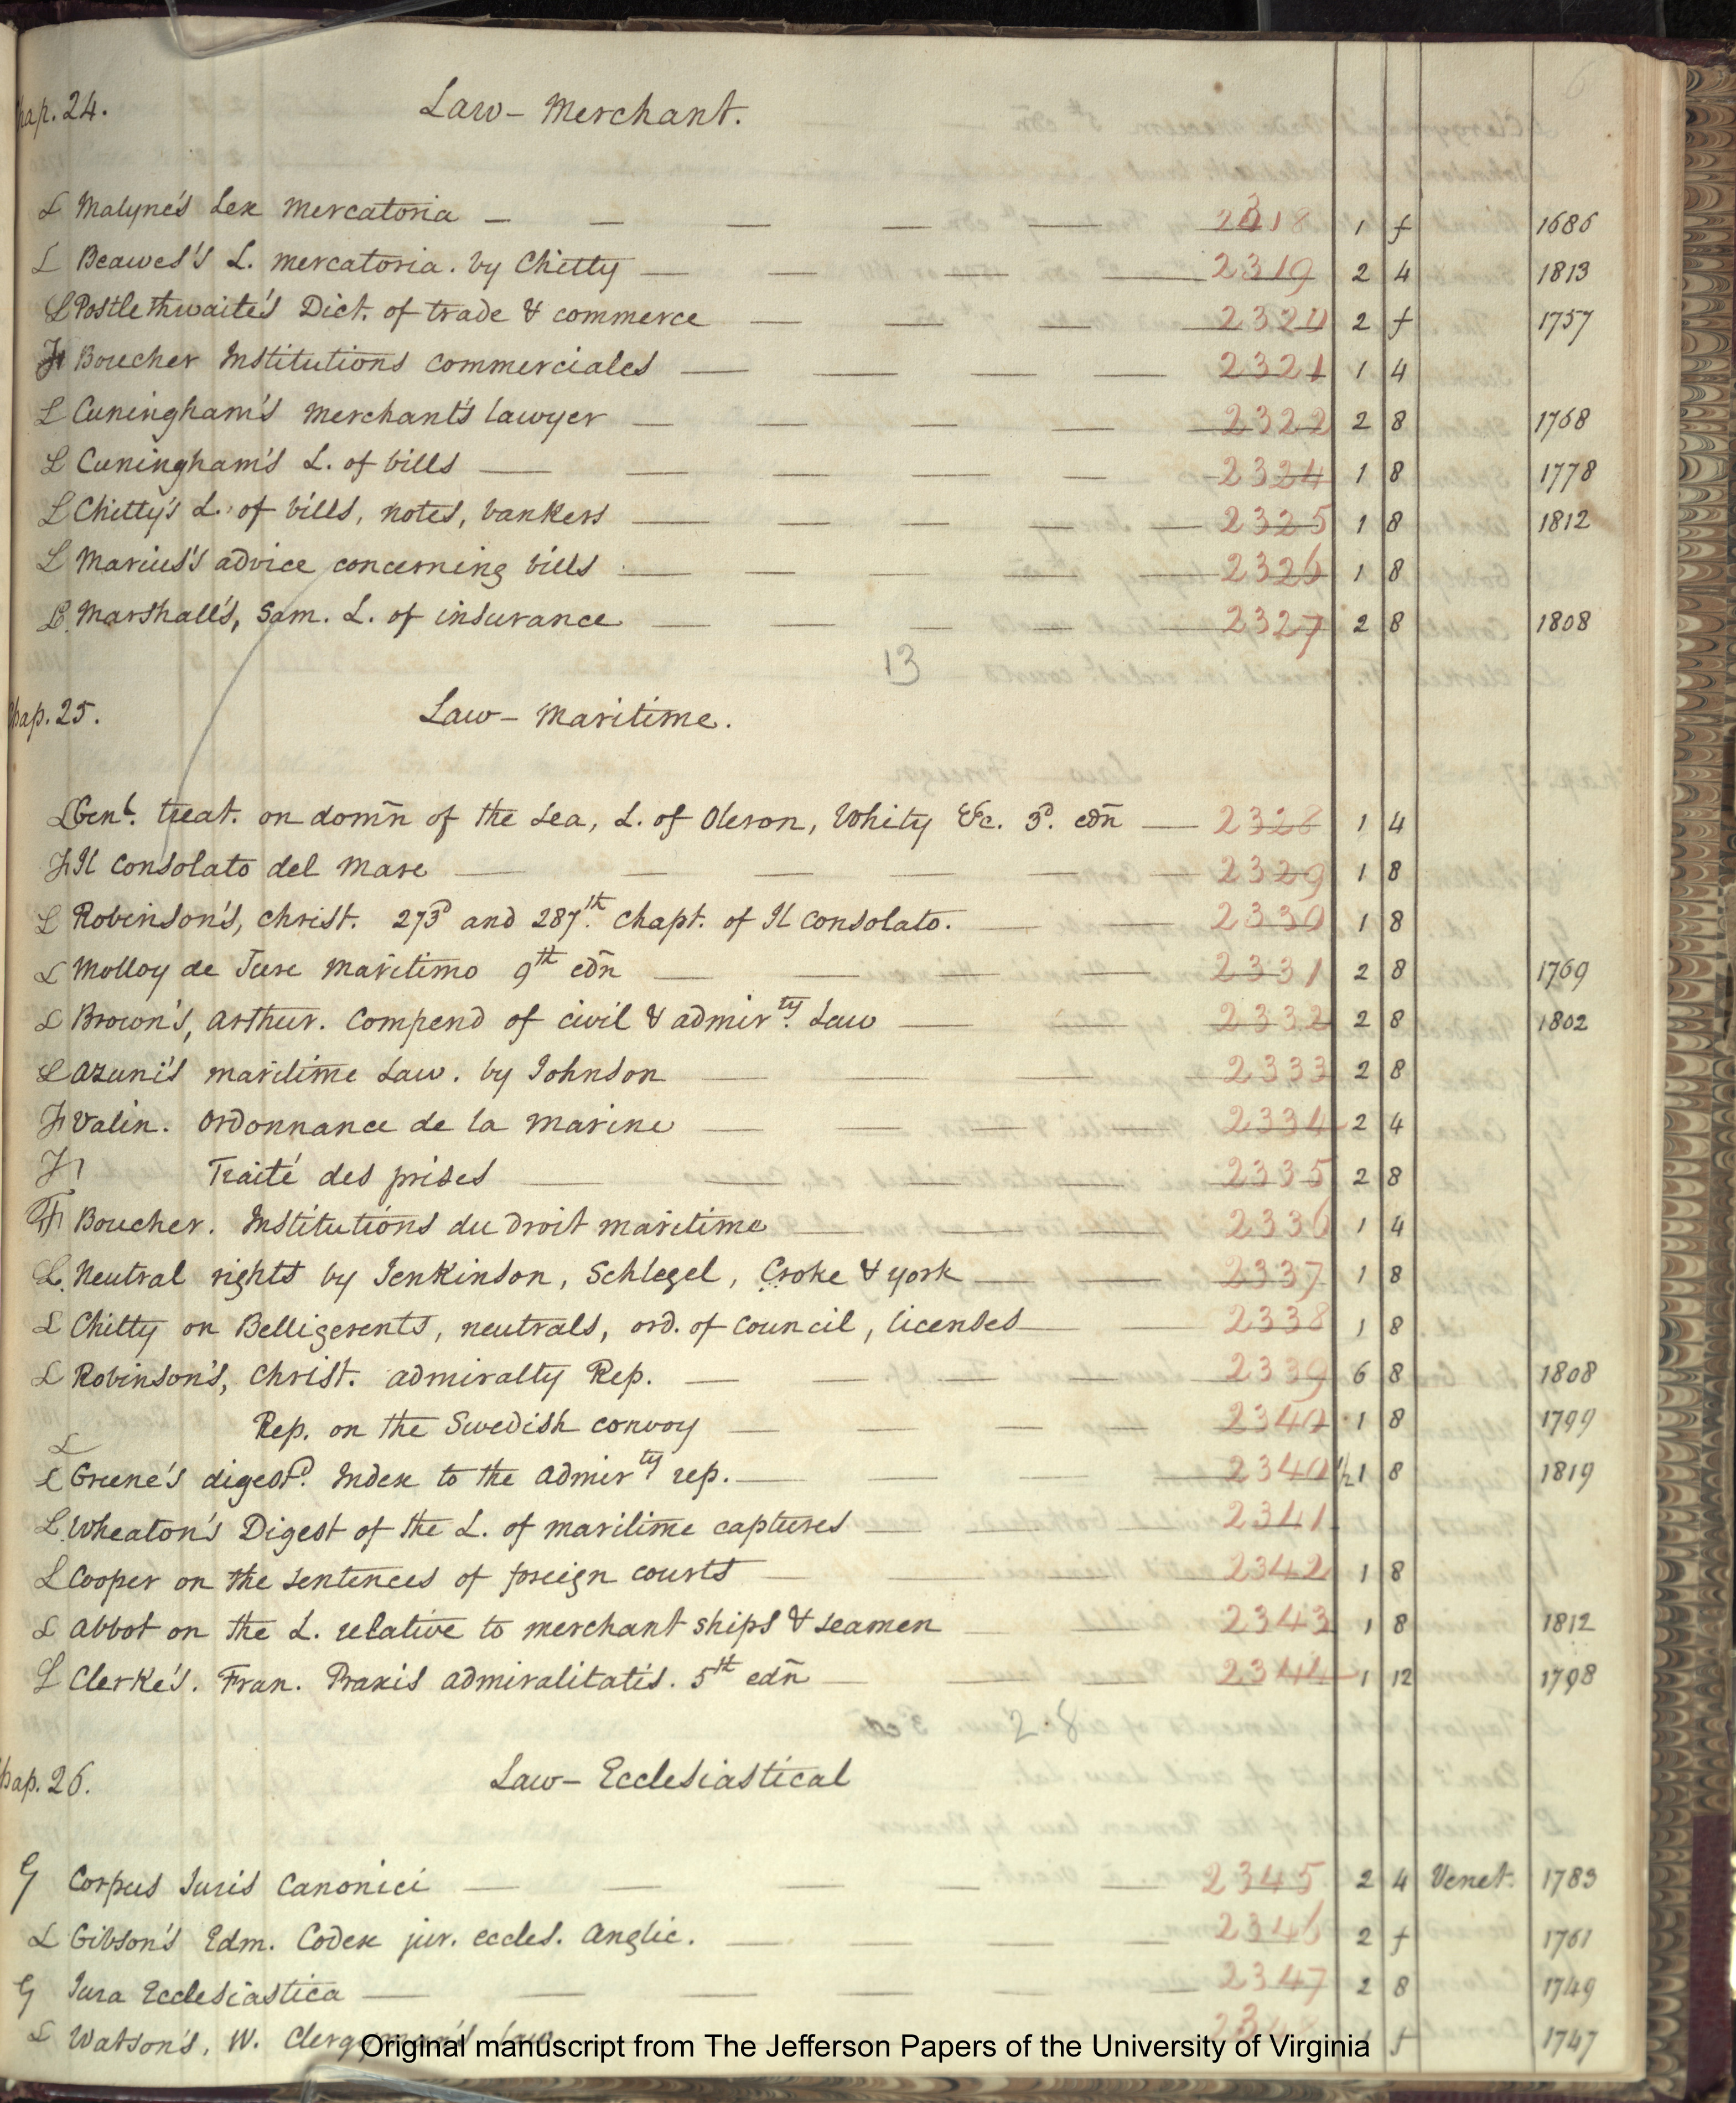 Chap. 24. Law-Merchant.
L Malyne's Lex Mercatoria — — — — — 2318 1 f 1686
L Beawes's L. mercatoria. by Chitty — — — — 2319 2 4 1813
L Postlethwaite's Dict. of trade & commerce — — — — 2320 2 f 1757
Fr Boucher Institutions commerciales — — — — 2321 1 4
L Cuningham's merchant's lawyer — — — — — 2322 2 8 1768
L Cuningham's L. of bills — — — — — 2324 1 8 1778
L Chitty's L. of bills, notes, bankers — — — — — 2325 1 8 1812
L Marius's advice concerning bills — — — — — 2326 1 8
L. Marshall's, Sam. L. of insurance — — — — — 2327 2 8 1808
13
Chap. 25. Law-Maritime.
L Genl. treat. on domñ of the sea, L. of Oleron, Whity &c. 3d. edñ — 2328 1 4
Fr Il Consolato del Mare — — — — — — 2329 1 8
L Robinson's, Christ. 273d and 287th. Chapt. of Il Consolato. — — 2330 1 8
L Molloy de Jure Maritimo 9th edñ — — — — 2331 2 8 1769
L Brown's, Arthur. Compend of civil & admirty. Law — — — 2332 2 8 1802
L Azuni's maritime Law. by Johnson — — — — 2333 2 8
Fr Valin. Ordonnance de la Marine — — — — 2334 2 4
Fr Traité des prises — — — — 2335 2 8
Fr Boucher. Institutions du Droit maritime — — — 2336 1 4
L. Neutral rights by Jenkinson, Schlegel, Croke & York — — 2337 1 8
L Chitty on Belligerents, neutrals, ord. of council, licenses — — 2338 1 8
L Robinson's, Christ. admiralty Rep. — — — — 2339 6 8 1808
L Rep. on the Swedish convoy — — — — 2340 1 8 1799
L Greene's digestd. Index to the admirty rep. — — — — 2340 1/2 1 8 1819
L. Wheaton's Digest of the L. of maritime captures — — — 2341
L Cooper on the sentences of foreign courts — — — 2342 1 8
L Abbot on the L. relative to merchant ships & seamen — — 2343 1 8 1812
L Clerke's. Fran. Praxis admiralitatis. 5th edñ — — — 2344 1 12 1798
28
Chap. 26. Law-Ecclesiastical
G Corpus Juris Canonici — — — — — 2345 2 4 Venet. 1783
L Gibson's Edm. Codex jur. eccles. Anglic. — — — — 2346 2 f 1761
G Jura Ecclesiastica — — — — — — 2347 2 8 1749
L Watson's, W. Clergyman's law 1 f 1747
Original manuscript from The Jefferson Papers of the University of Virginia